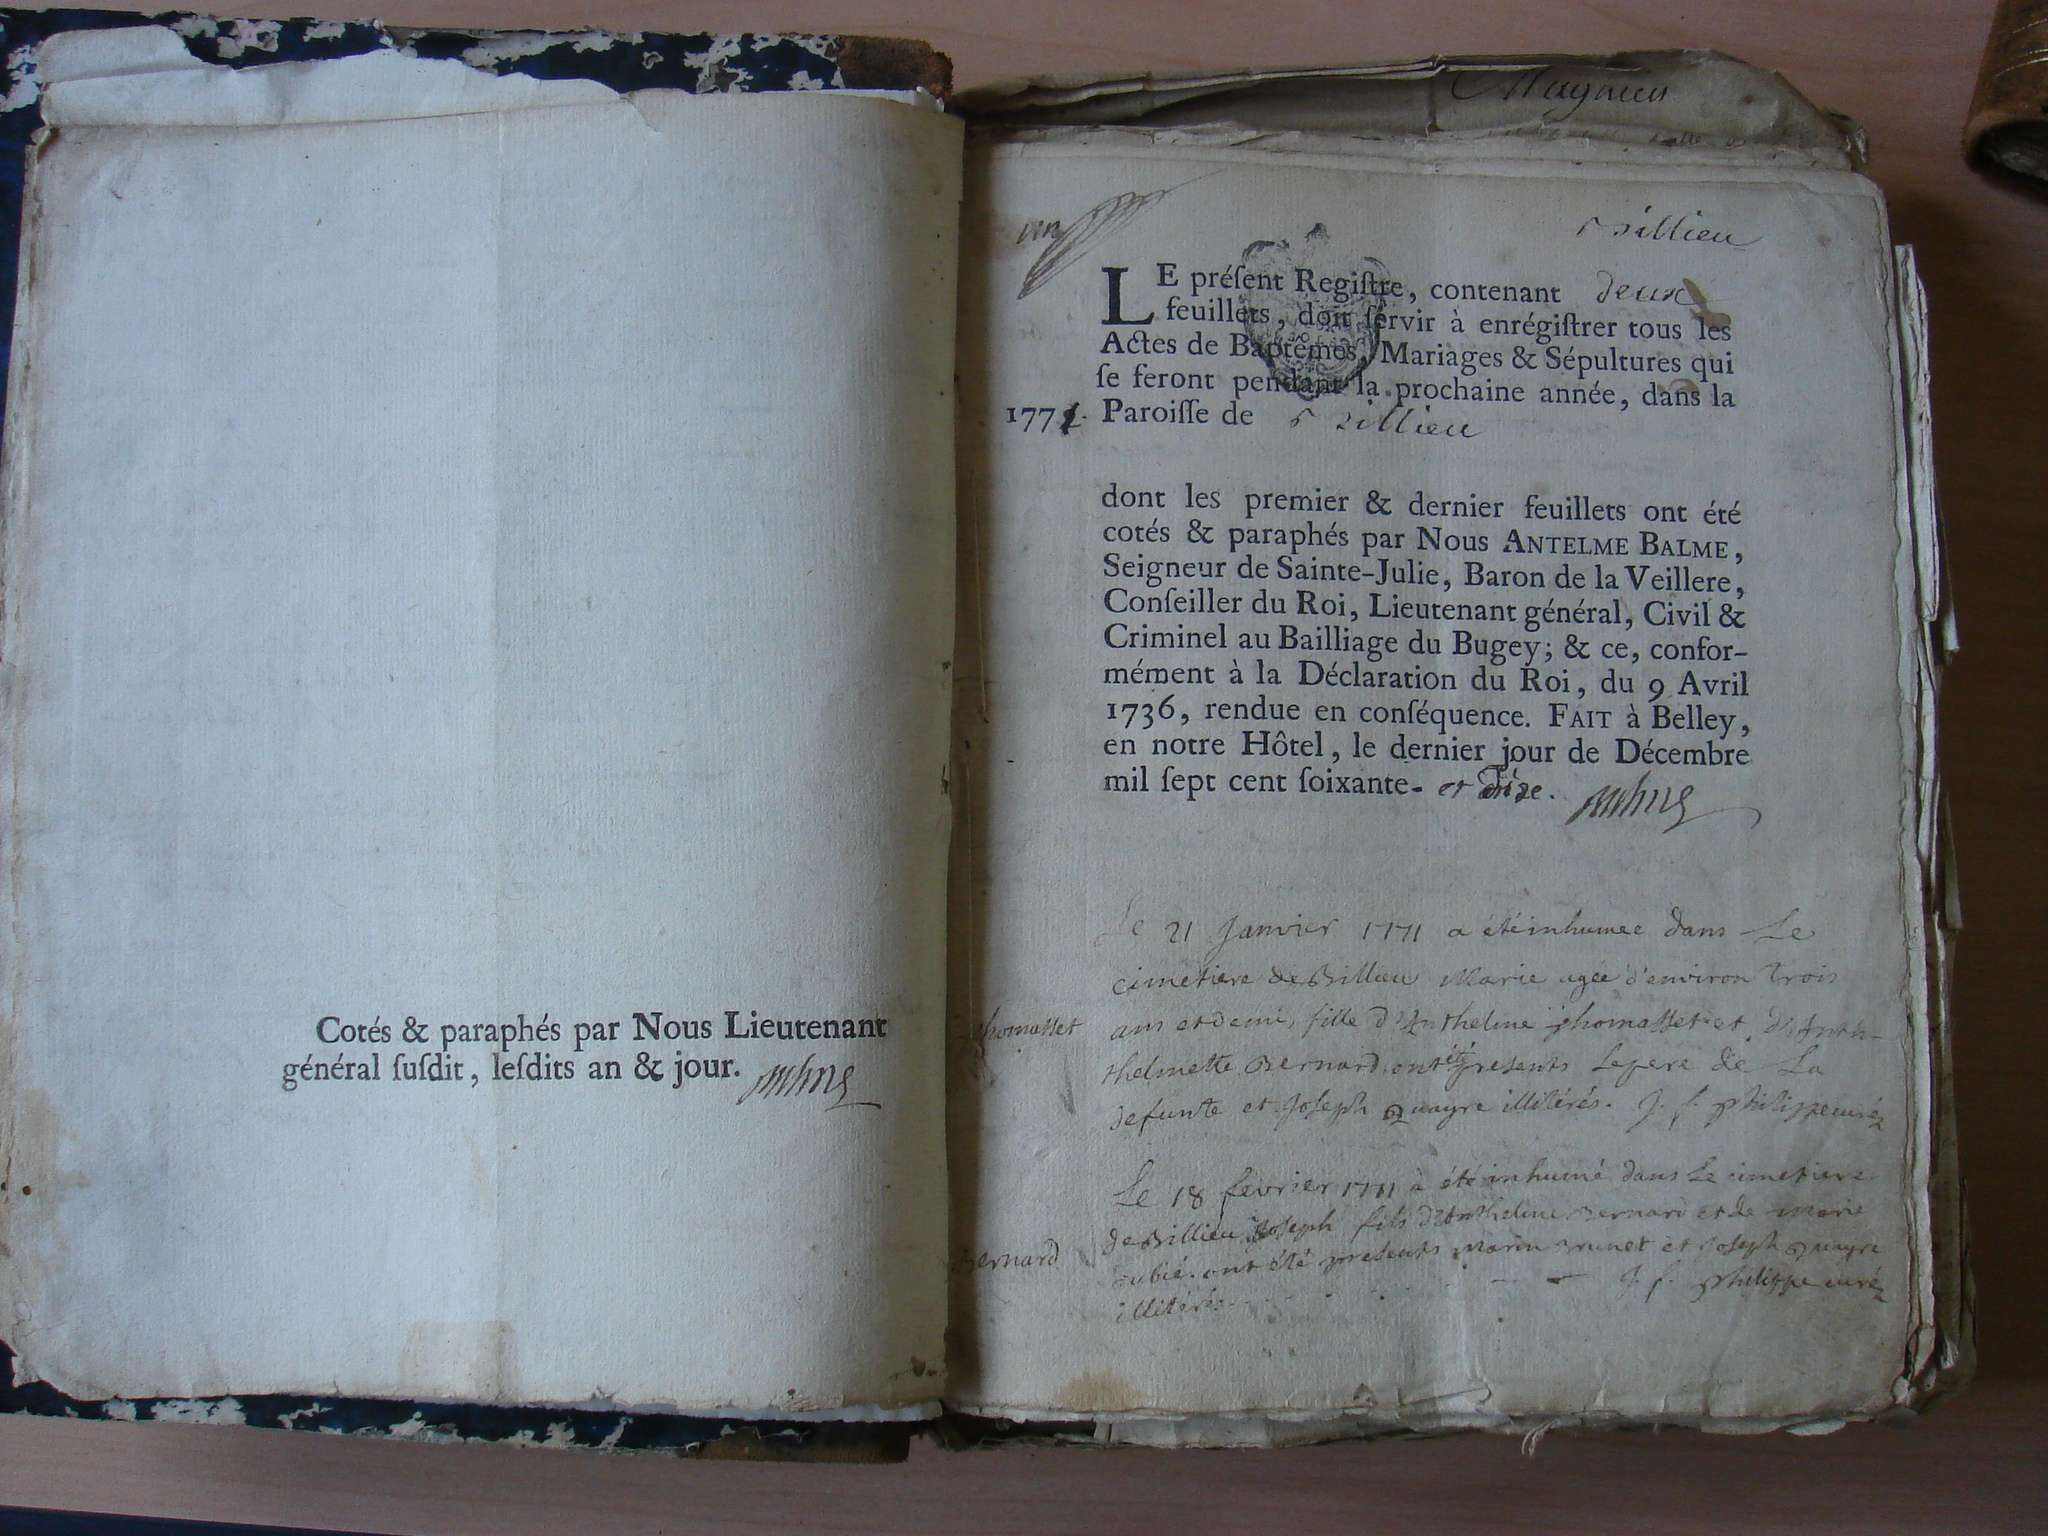 Cotés & paraphés par Nous Lieutenant
général ſuſdit, leſdits an & jour.
un
Billieu
LE préſent Regiſtre, contenant deux
feuillets, doit ſervir à enrégiſtrer tous les
Actes de Baptêmes, Mariages & Sépultures qui
ſe feront pendant la prochaine année, dans la
1771. Paroiſſe de Billieu
dont les premier & dernier feuillets ont été
cotés & paraphés par Nous ANTELME BALME,
Seigneur de Sainte-Julie, Baron de la Veillere,
Conſeiller du Roi, Lieutenant général, Civil &
Criminel au Bailliage du Bugey; & ce, confor-
mément à la Déclaration du Roi, du 9 Avril
1736, rendue en conſéquence. FAIT à Belley,
en notre Hôtel, le dernier jour de Décembre
mil ſept cent ſoixante- et dize.
Le 21 Janvier 1771 a été inhumee dans Le
cimetiere de Billieu Marie agée d'environ trois
thomasset ans et demi, fille d'Anthelme thomasset et d'Anth-
thelmette Bernard. ont été presents Le pere de La
defunte et Joseph quayre illitérés. J. f. philippe curé
Le 18 fevrier 1771 a été inhumé dans Le cimetiere
de Billieu Joseph fils d'Anthelme Bernard et de marie
Bernard ont été presents marin Brunet et Joseph quayre
illitérés J. f. philippe curé